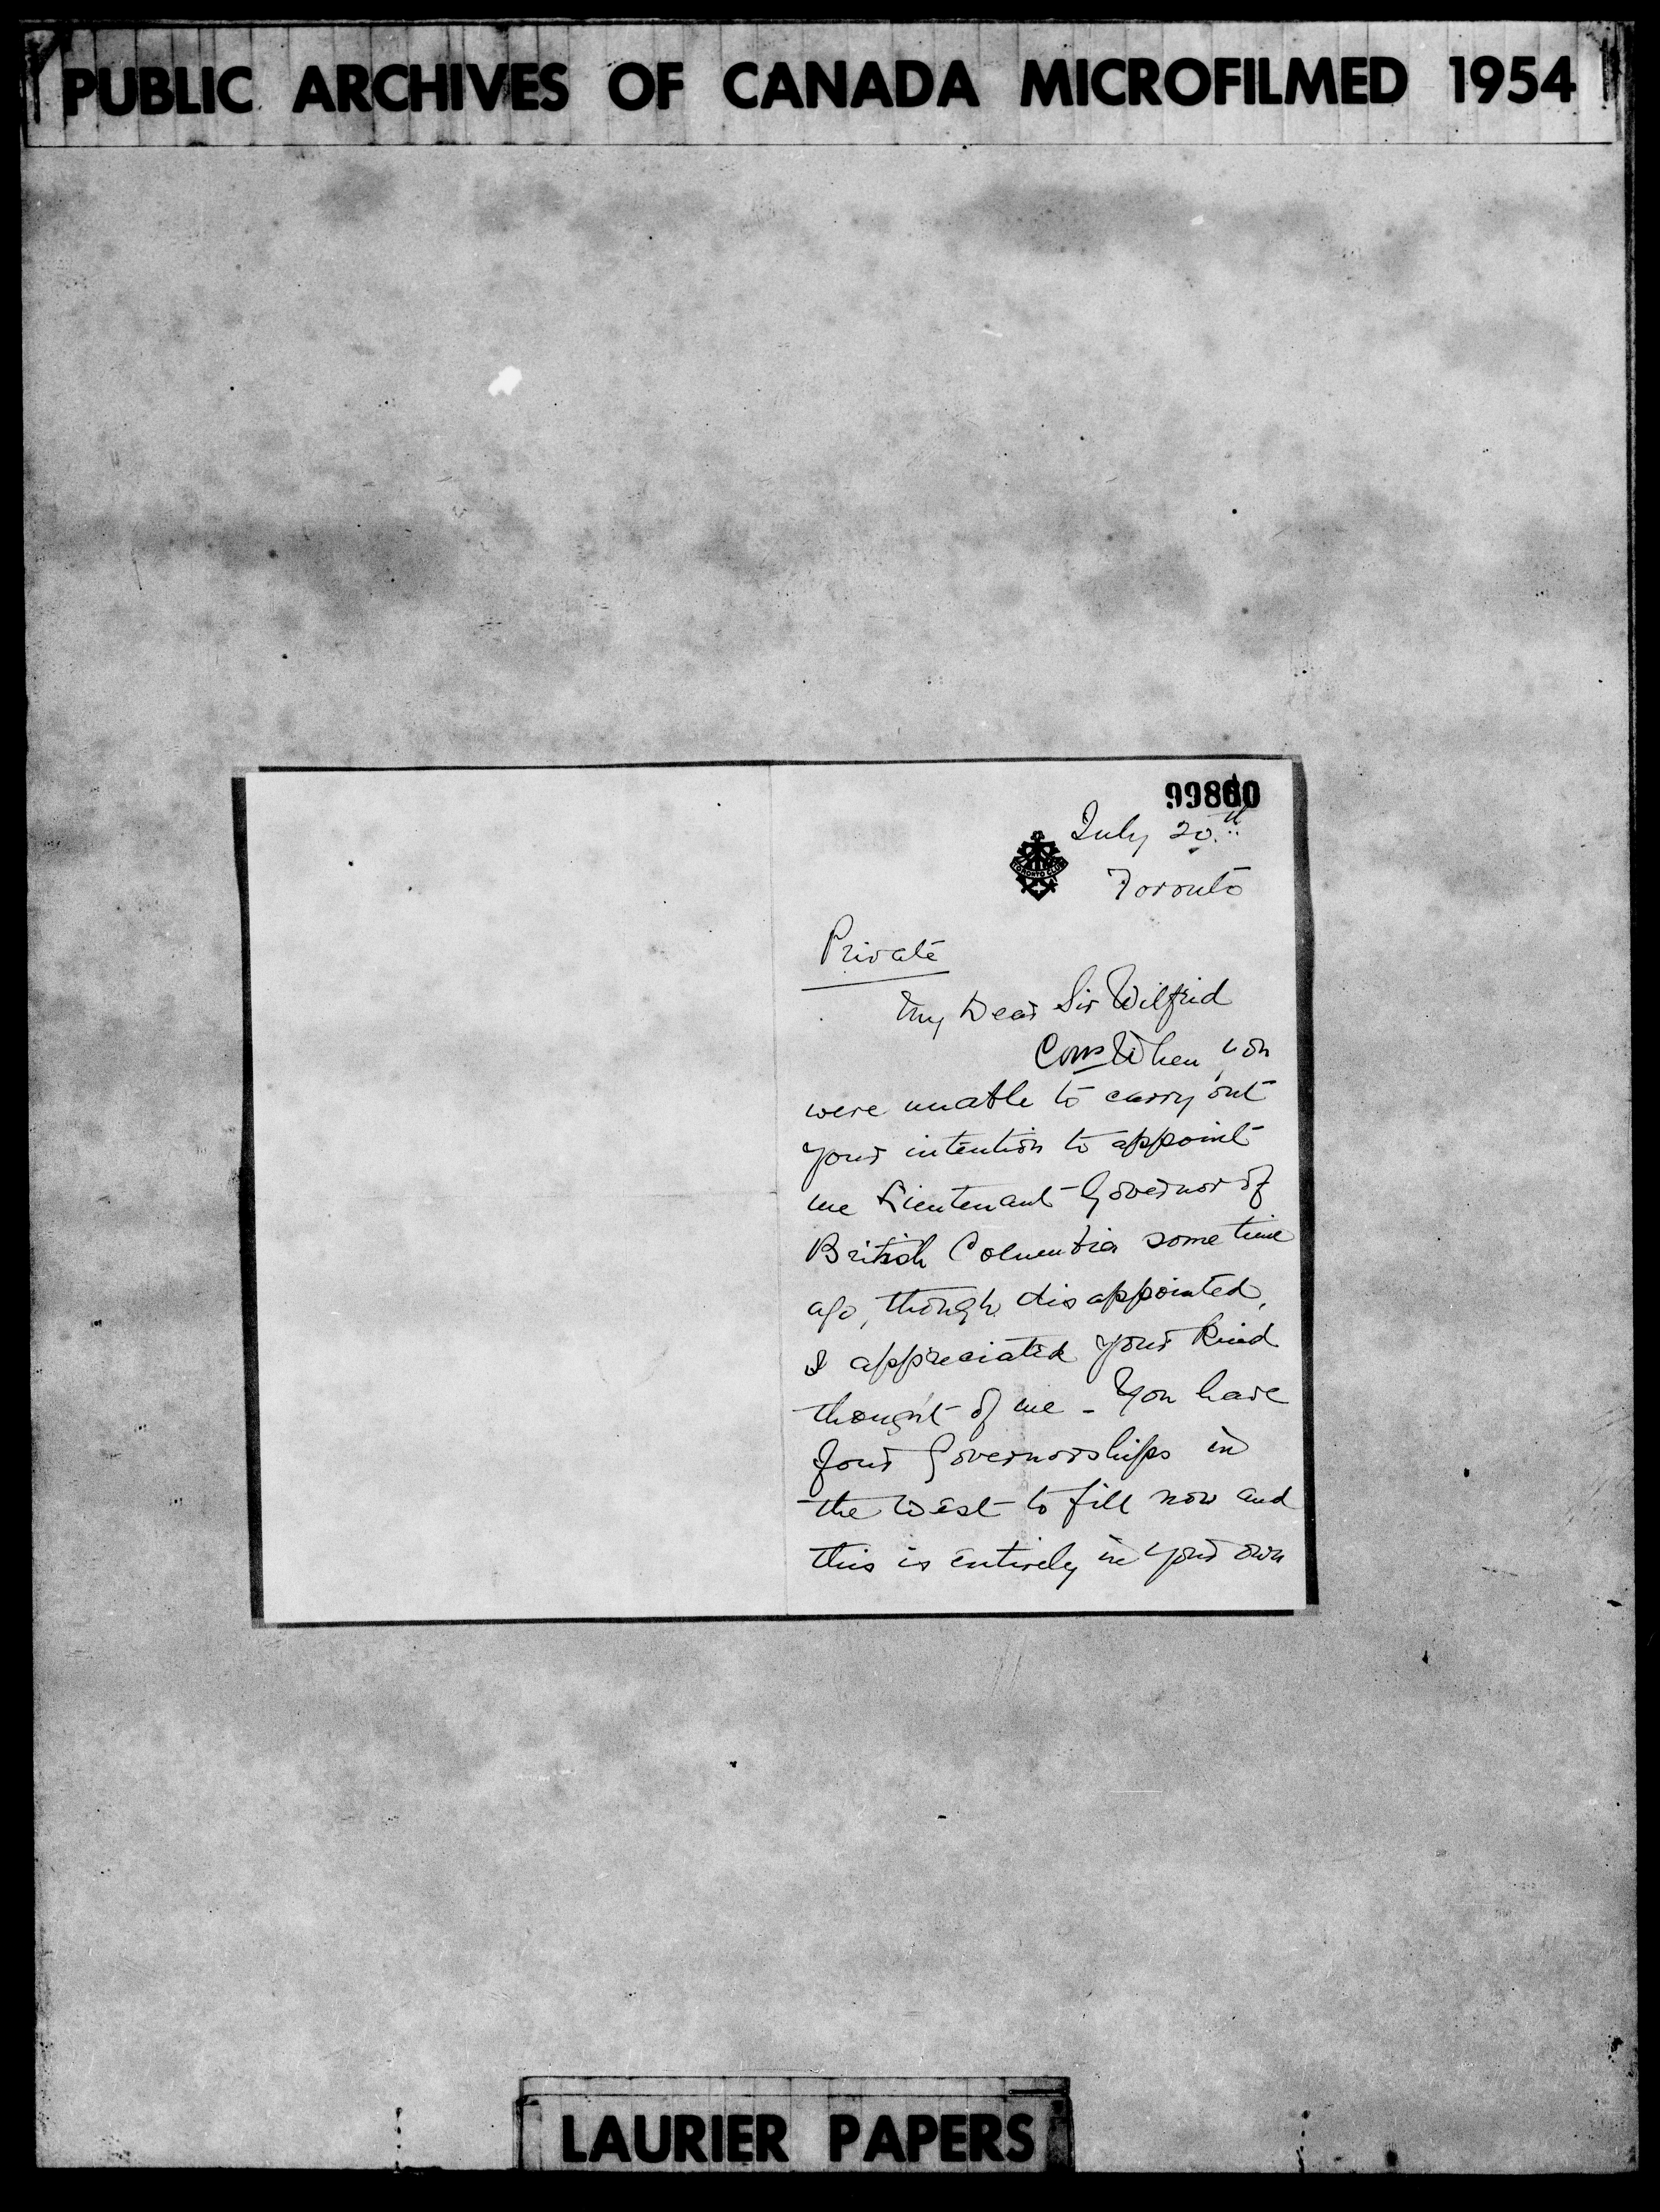 PUBLIC ARCHIVES OF CANADA MICROFILMED 1954
July 20th
TORONTO CLUB
Toronto
Private
My Dear Sir Wilfrid
When you
were unable to carry out
your intention to appoint
me Lieutenant-Governor of
British Columbia some time
ago, though disappointed,
I appreciated your kind
thought of me - You have
four Governorships in
the West to fill now and
this is entirely in your own
LAURIER PAPERS